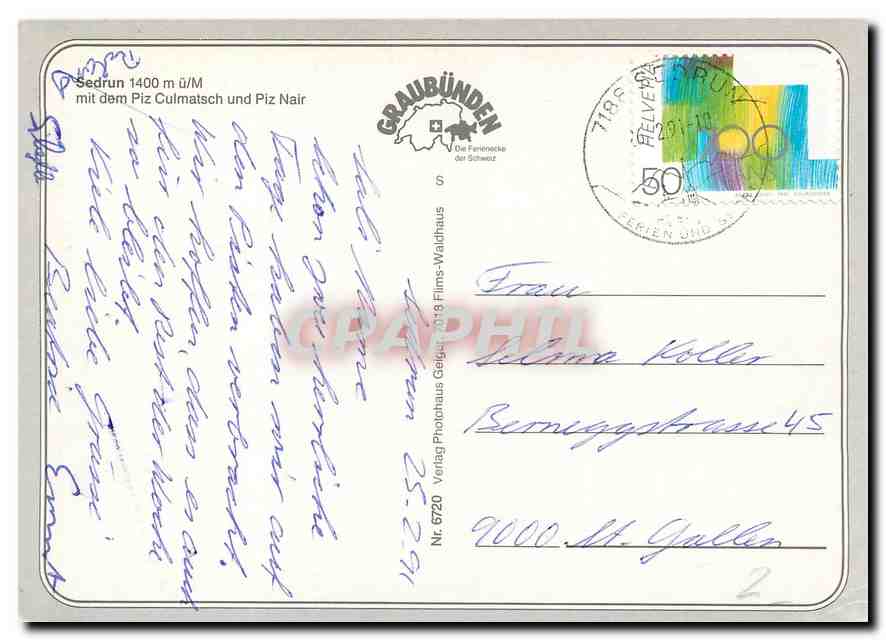 Sedrun 1400 m ü/M
mit dem Piz Culmatsch und Piz Nair
GRAUBÜNDEN
Die Ferienecke
der Schweiz
S
Nr. 6720 Verlag Photohaus Geiger, 7018 Flims-Waldhaus
7188 SEDRUN
2.91-10
FERIEN UND
HELVETIA
50
Sedrun 25.2.91
Schon zwei herrliche
Tage haben wir auf
den Pisten verbracht.
Wir hoffen, dass es auch
für den Rest der Woche
so bleibt.
Viele liebe Grüsse
Ernst
Frau
Selma Koller
Berneggstrasse 45
9000 St. Gallen
2
CPAPHIL